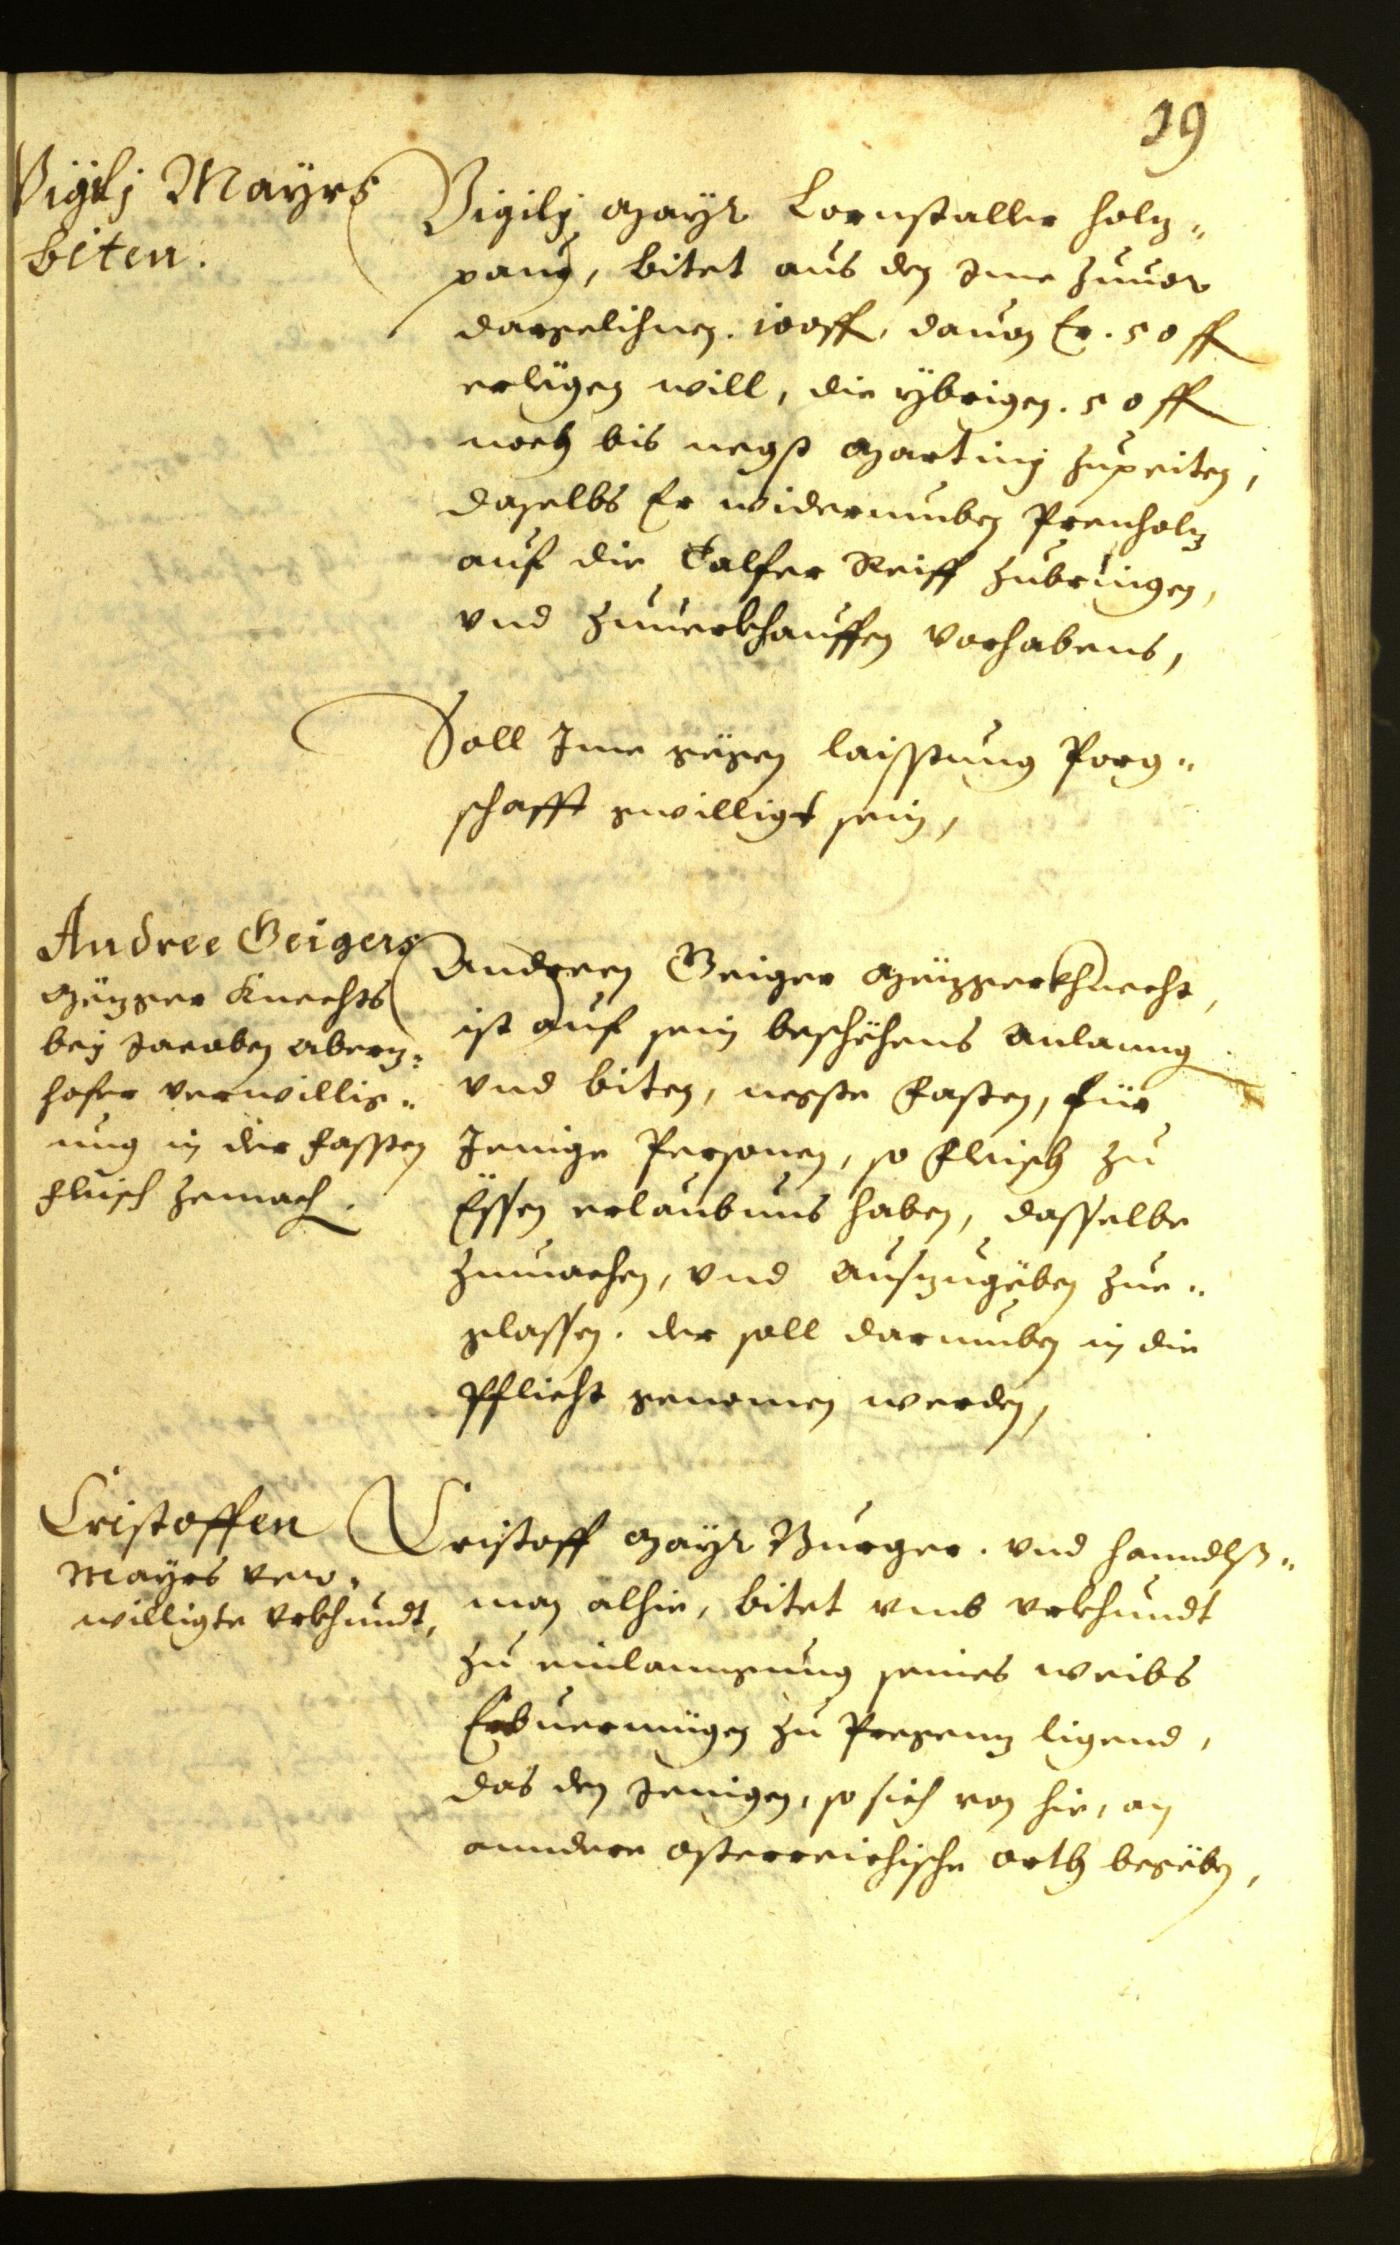 39
Vigilj Mayrs
biten.
Vigilj Mayr Cornstaller Holz„
paur, bitet aus den Ime zuuor
dargelihnen. 100 ff, dauon Er. 50 ff
erlegen will, die ybrigen. 50 ff
noch bis negst Martinj zupeiten,
daselbs Er widerumben Prenholz
auf die Talfer Reiff zubringen,
vnd zuuerkhauffen vorhabens,
Soll Ime gegen laisstung Porg„
schafft gwilligt sein,
Andree Geigers
Mezger Knechts
bey Jacoben Obern„
hofer verwillig„
ung in der fassten
fleisch zemach.
Andreen Geiger Mezgerkhnecht,
ist auf sein beschehens Anlanng
vnd biten, negste Fasten, für
Jenige Personen, so Fleisch zu
Essen erlaubnus haben, dasselbe
zumachen, vnd Auszugeben zue„
glassen. der soll darumben in die
Pflicht genomen werden,
Cristoffen
Mayrs ver„
willigte Vrkhundt,
Cristoff Mayr Burger. vnd Hanndlß„
man alhie, bitet vmb vrkhundt
zu einlanngung seines weibs
Erbuermügen zu Pregenz ligend,
das den Jenigen, so sich von hie, an
anndere Osterreichische Orth begeben,